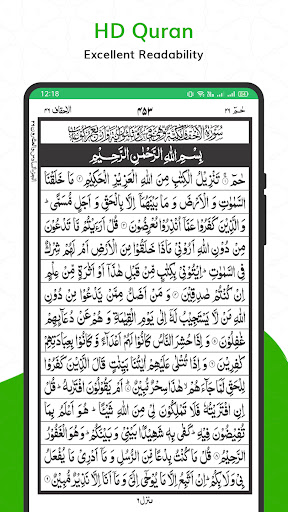 HD Quran
Excellent Readability
12:18
الاحقاف ٤٦
٤٥٣
حٰمٓ ٢٦
بِسْمِ اللّٰهِ الرَّحْمٰنِ الرَّحِيْمِ
حٰمٓ ۚ تَنْزِيْلُ الْكِتٰبِ مِنَ اللّٰهِ الْعَزِيْزِ الْحَكِيْمِ مَا خَلَقْنَا
السَّمٰوٰتِ وَ الْاَرْضَ وَ مَا بَيْنَهُمَاۤ اِلَّا بِالْحَقِّ وَ اَجَلٍ مُّسَمًّى
وَ الَّذِيْنَ كَفَرُوْا عَمَّاۤ اُنْذِرُوْا مُعْرِضُوْنَ قُلْ اَرَءَيْتُمْ مَّا تَدْعُوْنَ
مِنْ دُوْنِ اللّٰهِ اَرُوْنِيْ مَاذَا خَلَقُوْا مِنَ الْاَرْضِ اَمْ لَهُمْ شِرْكٌ
فِي السَّمٰوٰتِ اِيْتُوْنِيْ بِكِتٰبٍ مِّنْ قَبْلِ هٰذَاۤ اَوْ اَثٰرَةٍ مِّنْ عِلْمٍ
اِنْ كُنْتُمْ صٰدِقِيْنَ وَ مَنْ اَضَلُّ مِمَّنْ يَّدْعُوْا مِنْ دُوْنِ
اللّٰهِ مَنْ لَّا يَسْتَجِيْبُ لَهٗۤ اِلٰى يَوْمِ الْقِيٰمَةِ وَ هُمْ عَنْ دُعَآئِهِمْ
غٰفِلُوْنَ وَ اِذَا حُشِرَ النَّاسُ كَانُوْا لَهُمْ اَعْدَآءً وَّ كَانُوْا بِعِبَادَتِهِمْ
كٰفِرِيْنَ وَ اِذَا تُتْلٰى عَلَيْهِمْ اٰيٰتُنَا بَيِّنٰتٍ قَالَ الَّذِيْنَ كَفَرُوْا
لِلْحَقِّ لَمَّا جَآءَهُمْ هٰذَا سِحْرٌ مُّبِيْنٌ اَمْ يَقُوْلُوْنَ افْتَرٰىهُ قُلْ
اِنِ افْتَرَيْتُهٗ فَلَا تَمْلِكُوْنَ لِيْ مِنَ اللّٰهِ شَيْئًا هُوَ اَعْلَمُ بِمَا
تُفِيْضُوْنَ فِيْهِ كَفٰى بِهٖ شَهِيْدًۢا بَيْنِيْ وَ بَيْنَكُمْ وَ هُوَ الْغَفُوْرُ
الرَّحِيْمُ قُلْ مَا كُنْتُ بِدْعًا مِّنَ الرُّسُلِ وَ مَاۤ اَدْرِيْ مَا يُفْعَلُ
بِيْ وَ لَا بِكُمْ اِنْ اَتَّبِعُ اِلَّا مَا يُوْحٰۤى اِلَيَّ وَ مَاۤ اَنَا اِلَّا نَذِيْرٌ مُّبِيْنٌ
منزل ٦